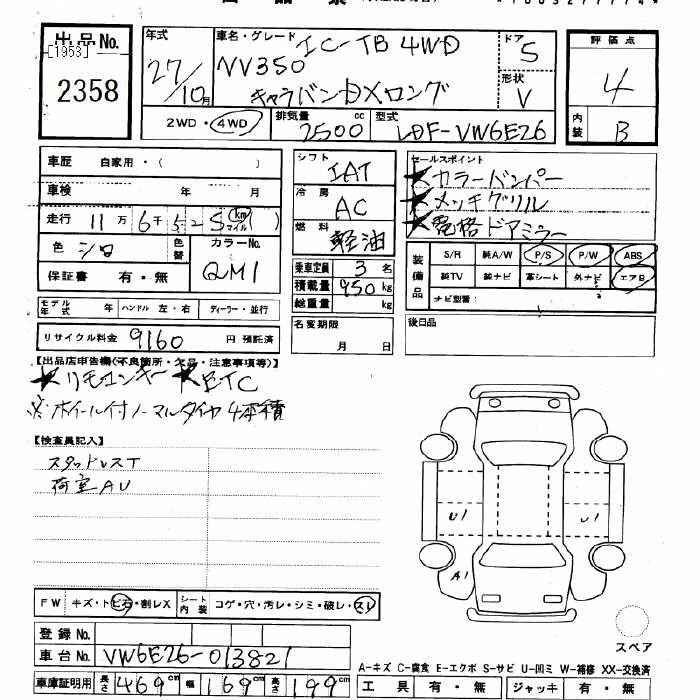 出品No.
[1953]
2358
年式
27/10月
車名・グレード
IC-TB 4WD
NV350
キャラバンDXロング
ドア
5
形状
V
評価点
4
内装
B
2WD・4WD
排気量
2500 cc
型式
LDF-VW6E26
車歴 自家用・( )
車検 年 月
走行 11万6千525(km マイル)
色 シロ
色替
カラーNo.
QM1
保証書 有・無
モデル年式 年
ハンドル 左・右
ディーラー・並行
リサイクル料金 9160 円 預託済
シフト
IAT
冷房
AC
燃料
軽油
乗車定員 3 名
積載量 950 kg
総重量 kg
名変期限
月 日
セールスポイント
★カラーバンパー
★メッキグリル
★電格ドアミラー
装備品
S/R 純A/W P/S P/W ABS
純TV 純ナビ 革シート 外ナビ エアB
ナビ型番:
後日品
【出品店申告欄(不良箇所・欠品・注意事項等)】
★リモコンキー ★ETC
※ホイール付ノーマルタイヤ 4本積
【検査員記入】
スタッドレスT
荷室AU
U1
U1
A1
スペア
FW キズ・トビ石・割レX
シート内装 コゲ・穴・汚レ・シミ・破レ・スレ
登録No.
車台No. VW6E26-013821
車庫証明用 長さ 469cm 幅 169cm 高さ 199cm
A-キズ C-腐食 E-エクボ S-サビ U-凹ミ W-補修 XX-交換済
工具 有・無 ジャッキ 有・無